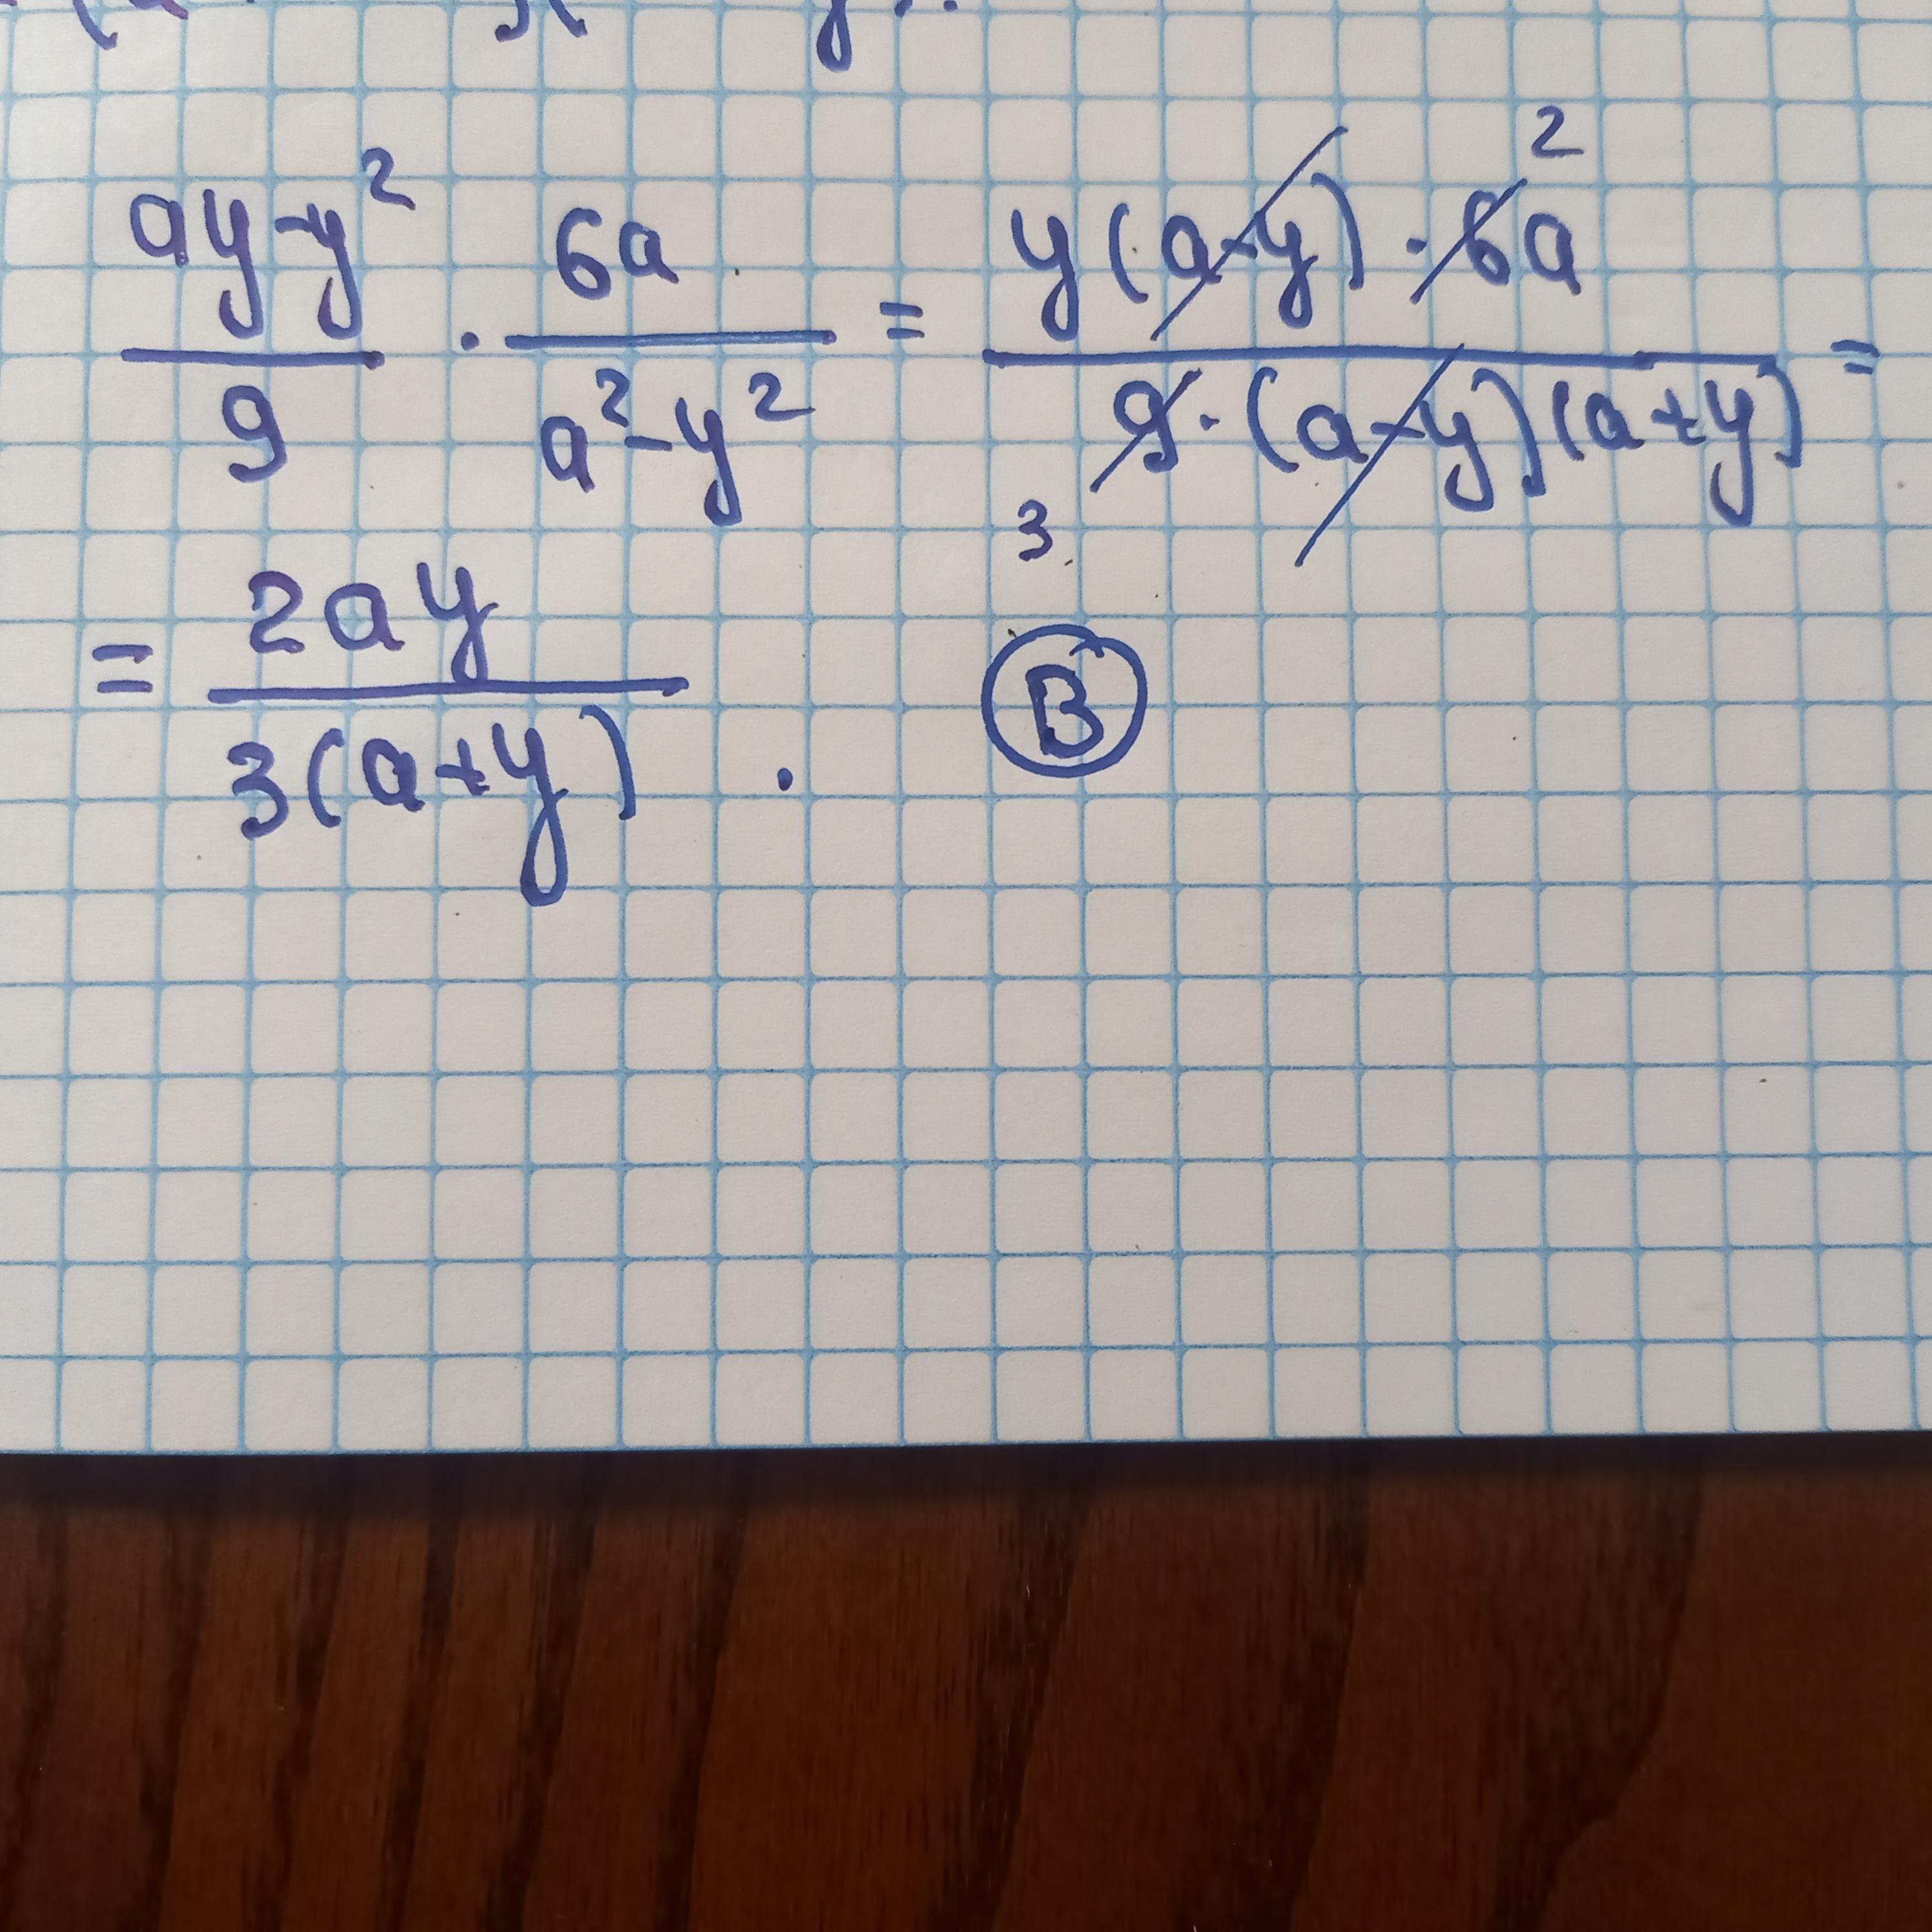 (ay-y²)/9 · 6a/(a²-y²) = (y(a-y) · 6a)/(9·(a-y)(a+y)) =
2
3
= 2ay/(3(a+y)) . B